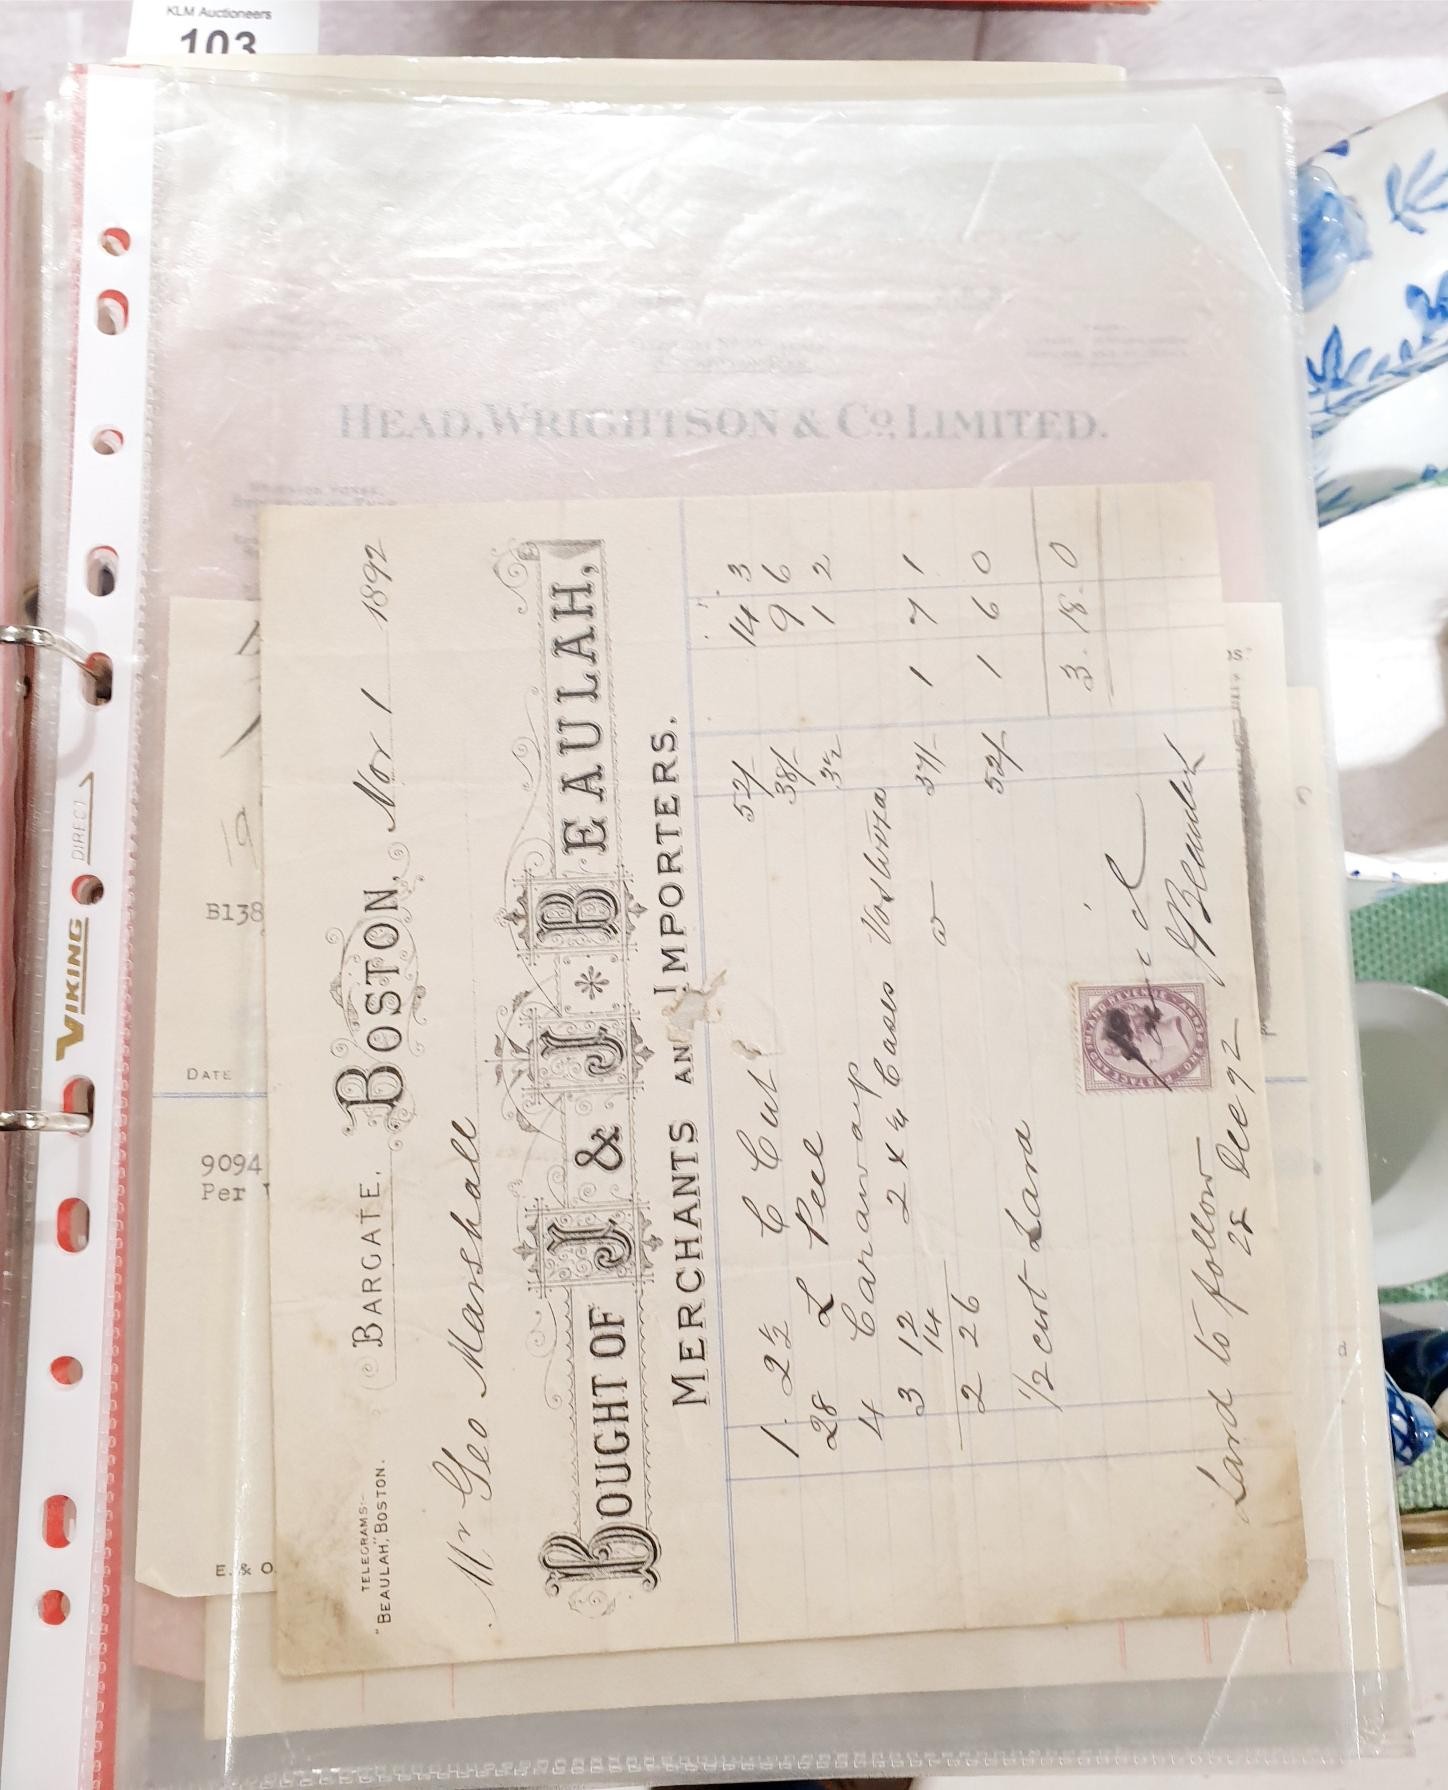 KLM Auctioneers
103
HEAD, WRIGHTSON & Co. LIMITED.
VIKING DIRECT
B138
DATE
9094
Per
E. & O.
TELEGRAMS:-
"BEAULAH," BOSTON.
BARGATE, BOSTON, Nov 1 1892
Mr Geo Marshall
BOUGHT OF J & J * BEAULAH,
MERCHANTS AND IMPORTERS.
1. 2½ C Cut 52/- 14 3
28 L Peel 38/- 9 6
4 Caraway 3½ 1 2
3 12 2 x ¼ Cases Vostizza
14 37/- 1 7 1
2 26 52/- 1 6 0
1/2 cwt Lard
3. 18. 0
POSTAGE & INLAND REVENUE
ONE PENNY
J Beaulah
Lard to follow
28 Dec 92